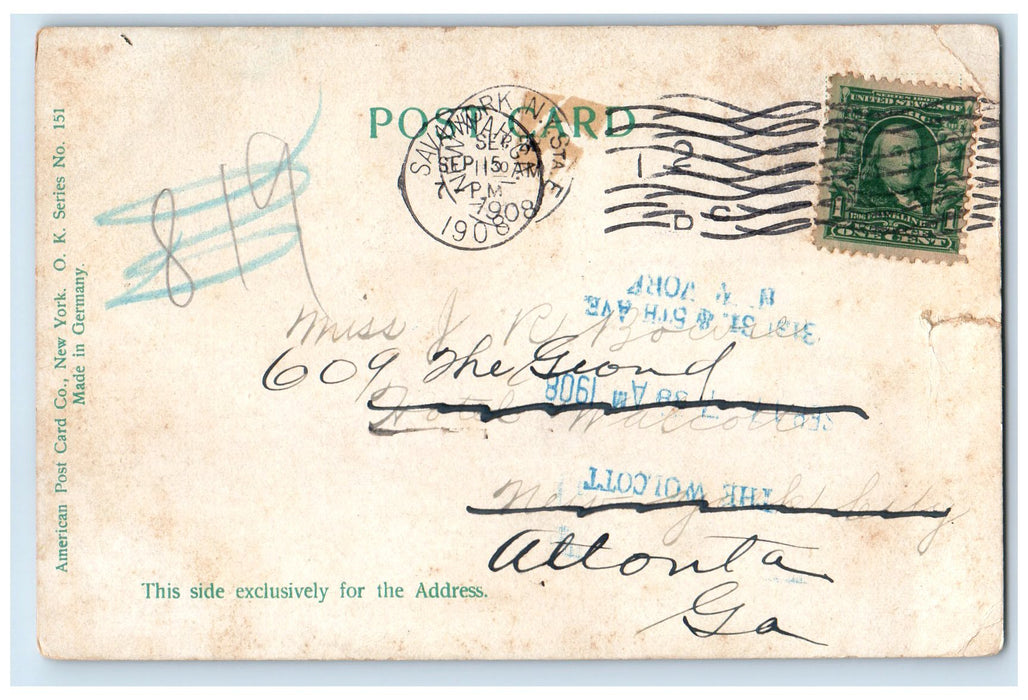 POST CARD
American Post Card Co., New York. O. K. Series No. 151
Made in Germany.
819
SAVANNAH, GA.
SEP 15
7 P.M
1908
NEW YORK, N.Y. STA. E
SEP
1150 AM
1908
2
D C
SERIES 1902
UNITED STATES OF
1706 FRANKLIN 1790
POSTAGE
1 ONE CENT 1
Miss J R
609 The Grand
Hotel Walcott
New York City
Atlanta
Ga
THE WOLCOTT
AM 1908
31st St. & 5TH AVE.
N. Y.
This side exclusively for the Address.